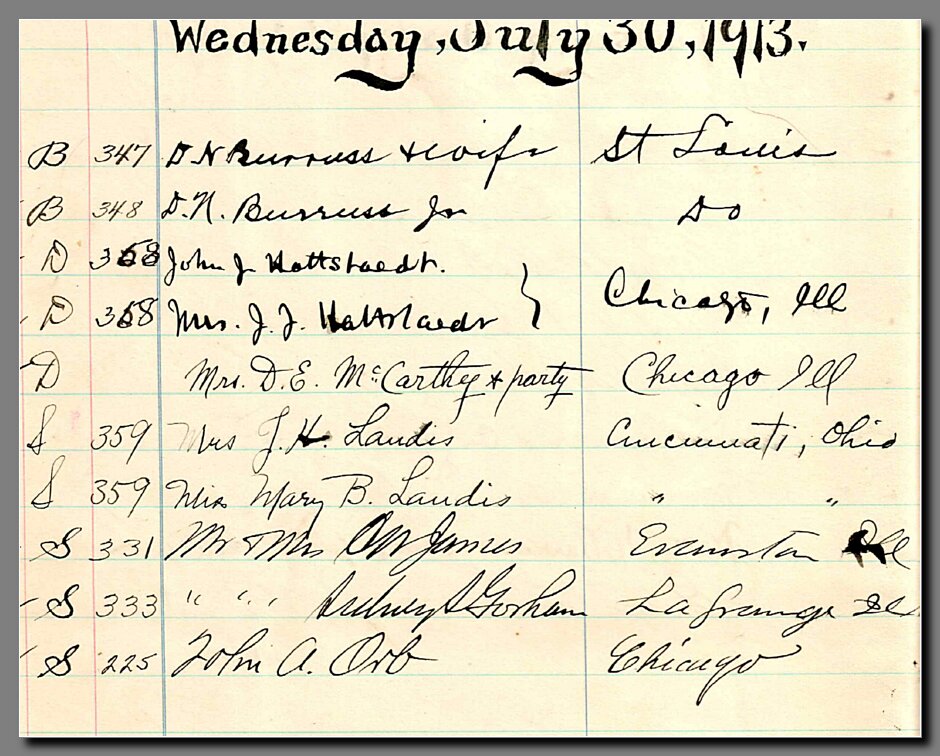 Wednesday, July 30, 1913.
B 347 D. N Burruss & wife St Louis
B 348 D. N. Burruss Jr Do
D 358 John J Hattstaedt.
D 358 Mrs. J. J. Hattstaedt } Chicago, Ill
D Mrs. D. E. McCarthy & party Chicago Ill
S 359 Mrs J. H. Landis Cincinnati, Ohio
S 359 Miss Mary B. Landis " "
S 331 Mr & Mrs James Evanston Ill
S 333 " " " Sidney S Gorham La Grange Ill
S 225 John A. Orb Chicago